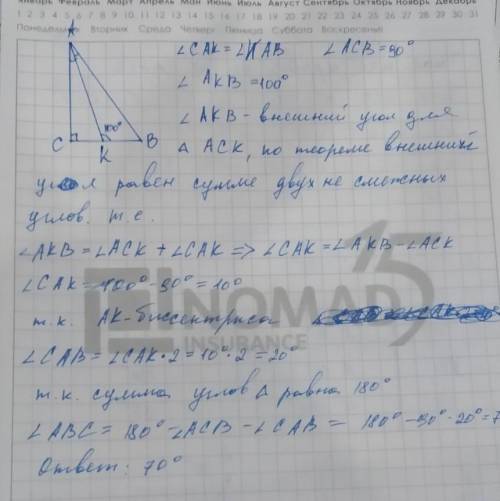 Январь Февраль Март Апрель Май Июнь Июль Август Сентябрь Октябрь Ноябрь Декабрь
1 2 3 4 5 6 7 8 9 10 11 12 13 14 15 16 17 18 19 20 21 22 23 24 25 26 27 28 29 30 31
Понедельник Вторник Среда Четверг Пятница Суббота Воскресенье
A
C
K
B
100°
∠CAK = ∠KAB ∠ACB = 90°
∠AKB = 100°
∠AKB - внешний угол для
△ ACK, по теореме внешний
угол равен сумме двух не смежных
углов. т.е.
∠AKB = ∠ACK + ∠CAK => ∠CAK = ∠AKB - ∠ACK
∠CAK = 100° - 90° = 10°
т.к. AK - биссектриса
∠CAB = ∠CAK · 2 = 10° · 2 = 20°
т.к. сумма углов △ равна 180°
∠ABC = 180° - ∠ACB - ∠CAB = 180° - 90° - 20° = 7
Ответ: 70°
NOMAD 15
INSURANCE